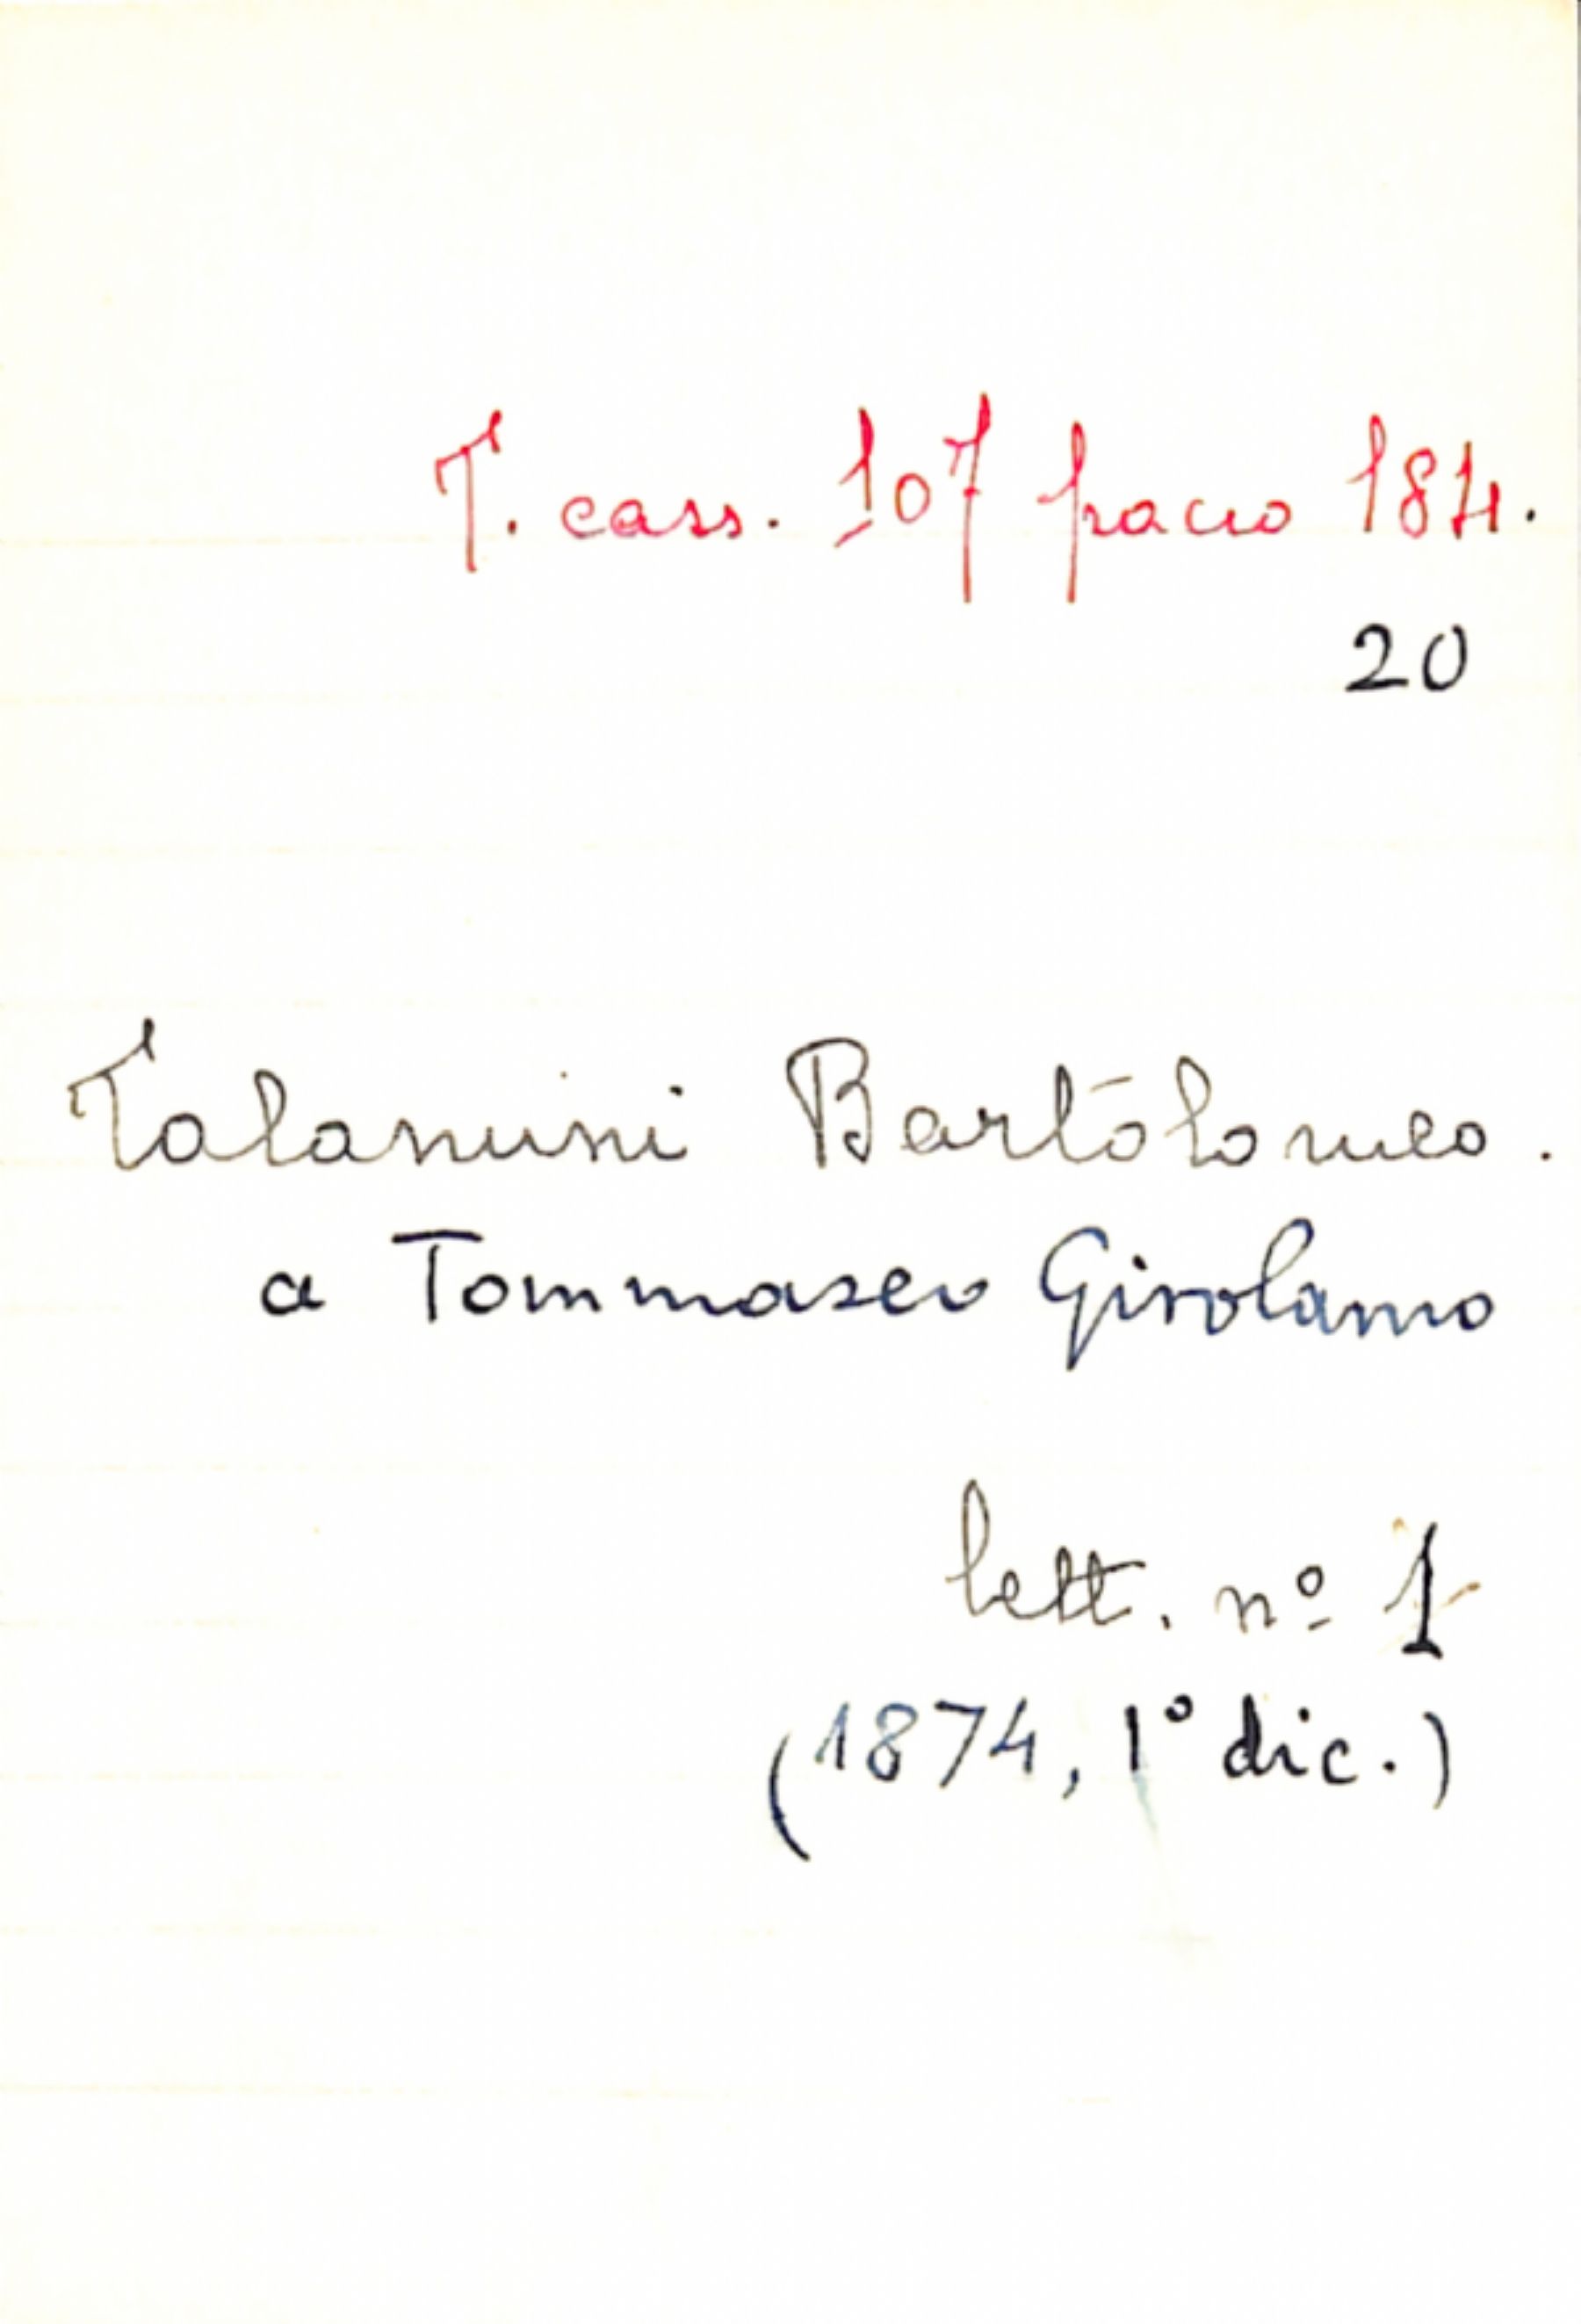 T. cass. 107 pacco 184.
20
Talamini Bartolomeo.
a Tommaseo Girolamo
lett. nº 1
(1874, 1° dic.)